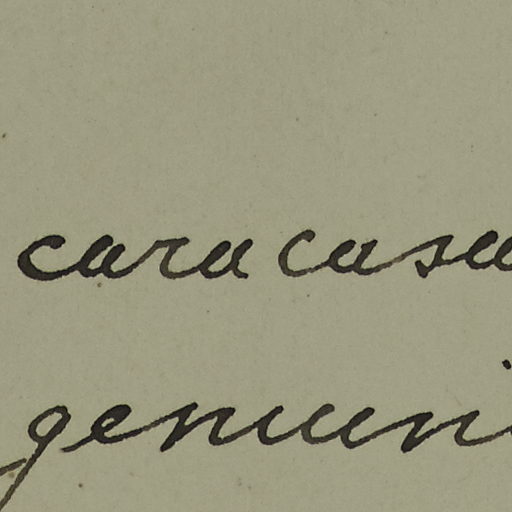 cara casa
genuni